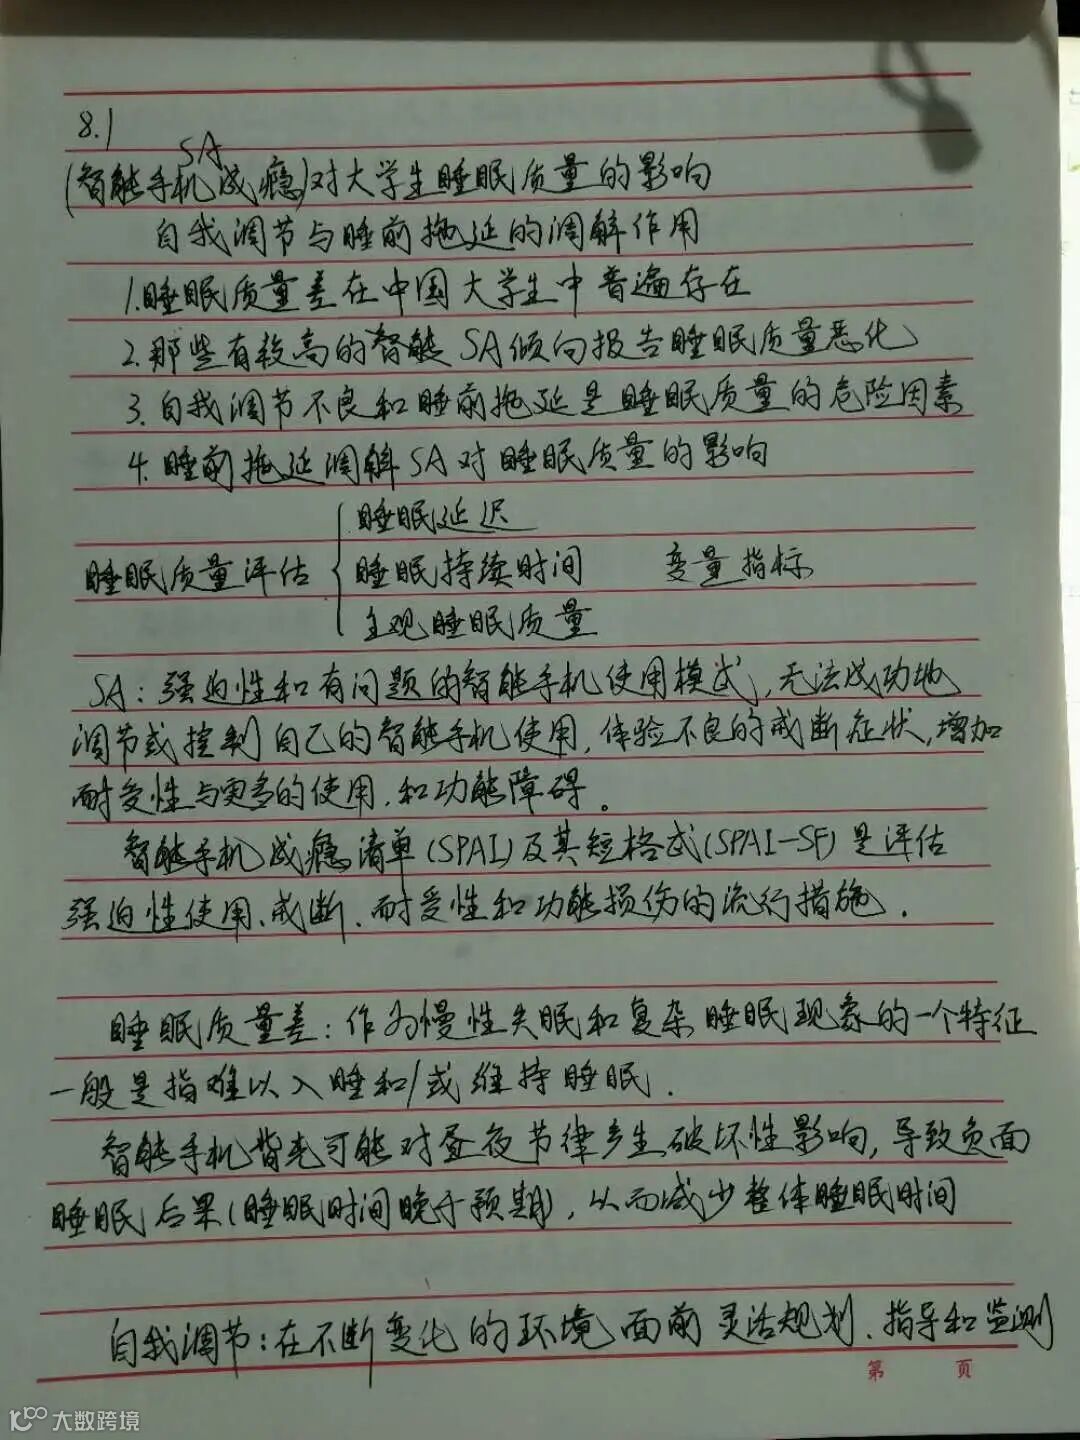 8.1
SA
(智能手机成瘾)对大学生睡眠质量的影响
自我调节与睡前拖延的调解作用
1.睡眠质量差在中国大学生中普遍存在
2.那些有较高的智能SA倾向报告睡眠质量恶化
3.自我调节不良和睡前拖延是睡眠质量的危险因素
4.睡前拖延调解SA对睡眠质量的影响
睡眠延迟
睡眠质量评估 睡眠持续时间 变量指标
主观睡眠质量
SA:强迫性和有问题的智能手机使用模式,无法成功地
调节或控制自己的智能手机使用,体验不良的戒断症状,增加
耐受性与更多的使用,和功能障碍。
智能手机成瘾清单(SPAI)及其短格式(SPAI-SF)是评估
强迫性使用、戒断、耐受性和功能损伤的流行措施.
睡眠质量差:作为慢性失眠和复杂睡眠现象的一个特征
一般是指难以入睡和/或维持睡眠.
智能手机背光可能对昼夜节律产生破坏性影响,导致负面
睡眠后果(睡眠时间晚于预期),从而减少整体睡眠时间
自我调节:在不断变化的环境面前灵活规划、指导和监测
第 页
大数跨境